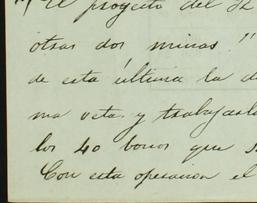 El proyecto del
otras dos minas!!
de esta última la d
ma veta y trabajarla
los 40 bonos que s
Con esta operación el